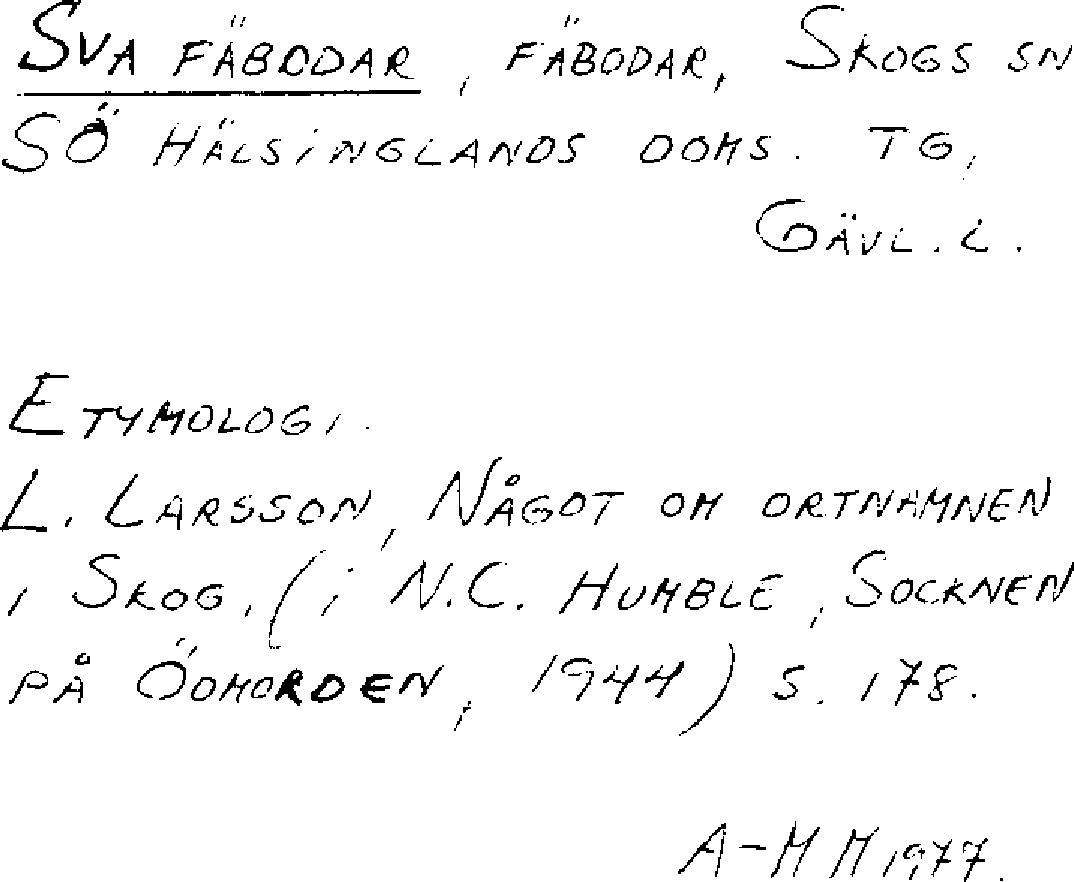 SVA FÄBODAR, FÄBODAR, SKOGS SN
SÖ HÄLSINGLANDS DOMS. TG,
GÄVL. L.
ETYMOLOGI.
L. LARSSON, NÅGOT OM ORTNAMNEN
I SKOG. (i N.C. HUMBLE, SOCKNEN
PÅ ÖDMORDEN, 1944) S. 178.
A-M M 1977.